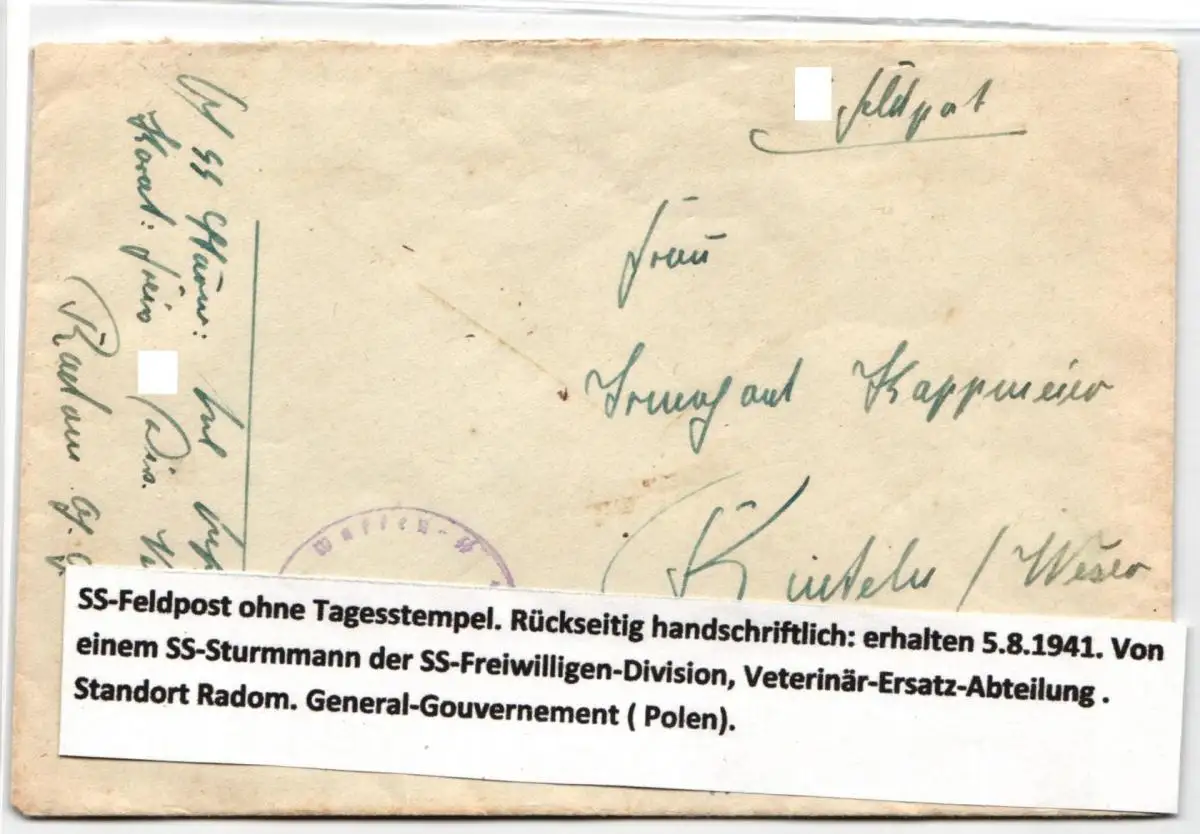 Feldpost
Frau
Irmgard Kappmeier
Rinteln / Weser
SS
Radom
Waffen-SS
SS-Feldpost ohne Tagesstempel. Rückseitig handschriftlich: erhalten 5.8.1941. Von
einem SS-Sturmmann der SS-Freiwilligen-Division, Veterinär-Ersatz-Abteilung .
Standort Radom. General-Gouvernement ( Polen).